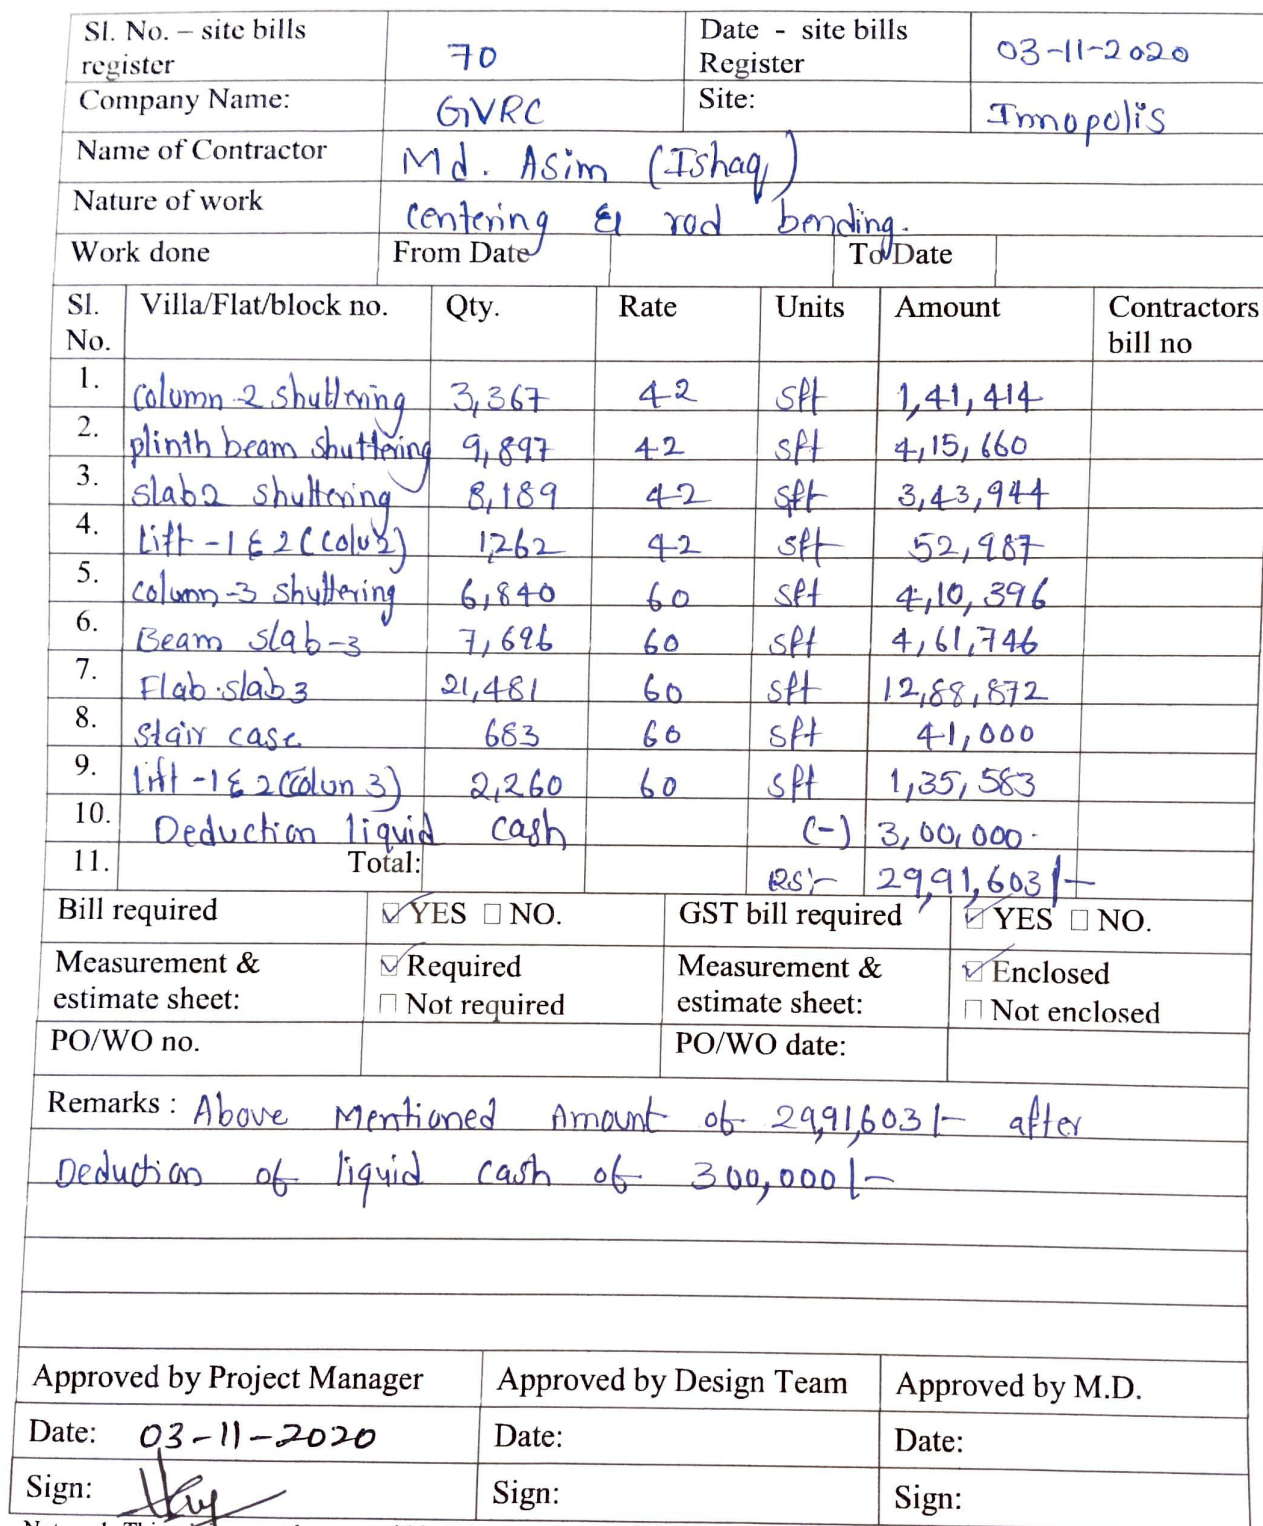 Sl. No. – site bills register 70 Date - site bills Register 03-11-2020
Company Name: GVRC Site: Innopolis
Name of Contractor Md. Asim (Ishaq)
Nature of work centering & rod bending.
Work done From Date To Date
Sl. No. Villa/Flat/block no. Qty. Rate Units Amount Contractors bill no
1. column-2 shuttering 3,367 42 sft 1,41,414
2. plinth beam shuttering 9,897 42 sft 4,15,660
3. slab2 shuttering 8,189 42 sft 3,43,944
4. Lift-1 & 2 (Colu2) 1,262 42 sft 52,987
5. column-3 shuttering 6,840 60 sft 4,10,396
6. Beam slab-3 7,696 60 sft 4,61,746
7. Flab.slab3 21,481 60 sft 12,88,872
8. Stair case 683 60 sft 41,000
9. lift-1 & 2 (Colun 3) 2,260 60 sft 1,35,583
10. Deduction liquid cash (-) 3,00,000.
11. Total: Rs:- 29,91,603/-
Bill required ☑ YES □ NO. GST bill required ☑ YES □ NO.
Measurement & estimate sheet: ☑ Required Measurement & estimate sheet: ☑ Enclosed
□ Not required □ Not enclosed
PO/WO no. PO/WO date:
Remarks : Above Mentioned Amount of 29,91,603/- after
Deduction of liquid cash of 300,000/-
Approved by Project Manager Approved by Design Team Approved by M.D.
Date: 03-11-2020 Date: Date:
Sign: Sign: Sign: